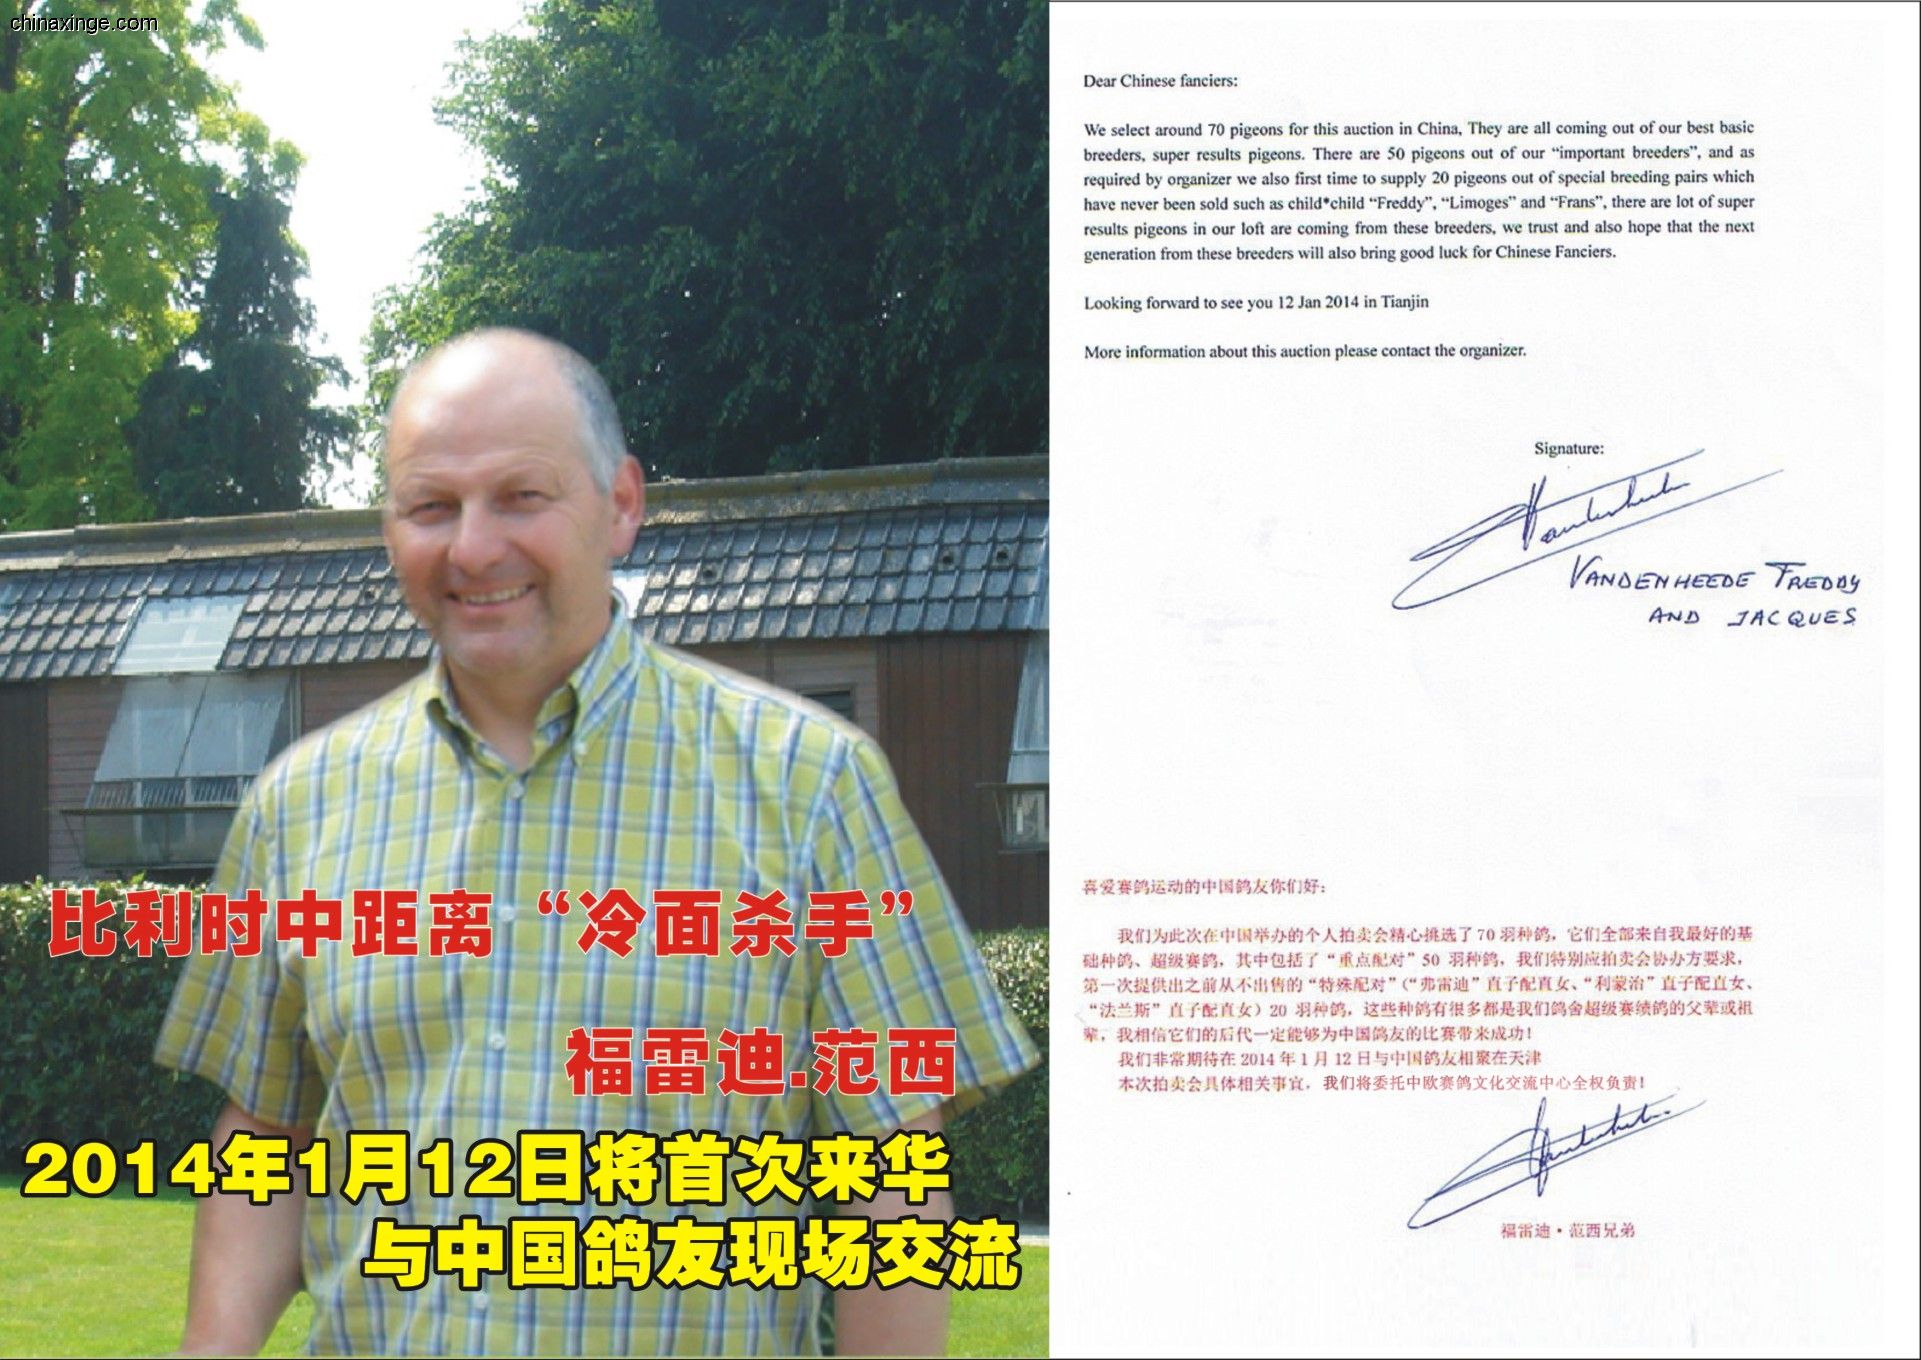 chinaxinge.com
比利时中距离“冷面杀手”
福雷迪.范西
2014年1月12日将首次来华
与中国鸽友现场交流
Dear Chinese fanciers:
We select around 70 pigeons for this auction in China, They are all coming out of our best basic
breeders, super results pigeons. There are 50 pigeons out of our “important breeders”, and as
required by organizer we also first time to supply 20 pigeons out of special breeding pairs which
have never been sold such as child*child “Freddy”, “Limoges” and “Frans”, there are lot of super
results pigeons in our loft are coming from these breeders, we trust and also hope that the next
generation from these breeders will also bring good luck for Chinese Fanciers.
Looking forward to see you 12 Jan 2014 in Tianjin
More information about this auction please contact the organizer.
Signature:
VANDENHEEDE FREDDY
AND JACQUES
喜爱赛鸽运动的中国鸽友你们好:
我们为此次在中国举办的个人拍卖会精心挑选了 70 羽种鸽，它们全部来自我最好的基
础种鸽、超级赛鸽，其中包括了“重点配对”50 羽种鸽，我们特别应拍卖会协办方要求，
第一次提供出之前从不出售的“特殊配对”（“弗雷迪”直子配直女、“利蒙治”直子配直女、
“法兰斯”直子配直女）20 羽种鸽，这些种鸽有很多都是我们鸽舍超级赛绩鸽的父辈或祖
辈，我相信它们的后代一定能够为中国鸽友的比赛带来成功！
我们非常期待在 2014 年 1 月 12 日与中国鸽友相聚在天津
本次拍卖会具体相关事宜，我们将委托中欧赛鸽文化交流中心全权负责！
福雷迪·范西兄弟